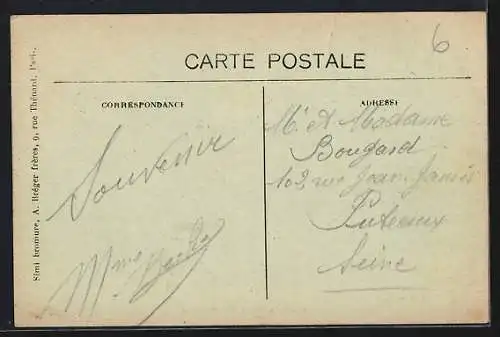 6
CARTE POSTALE
CORRESPONDANCE
ADRESSE
Souvenir
Mme
Mr et Madame
Bougard
102 rue Jean Jaurès
Puteaux
Seine
Simi bromure, A. Bréger frères, 9, rue Thénard, Paris.